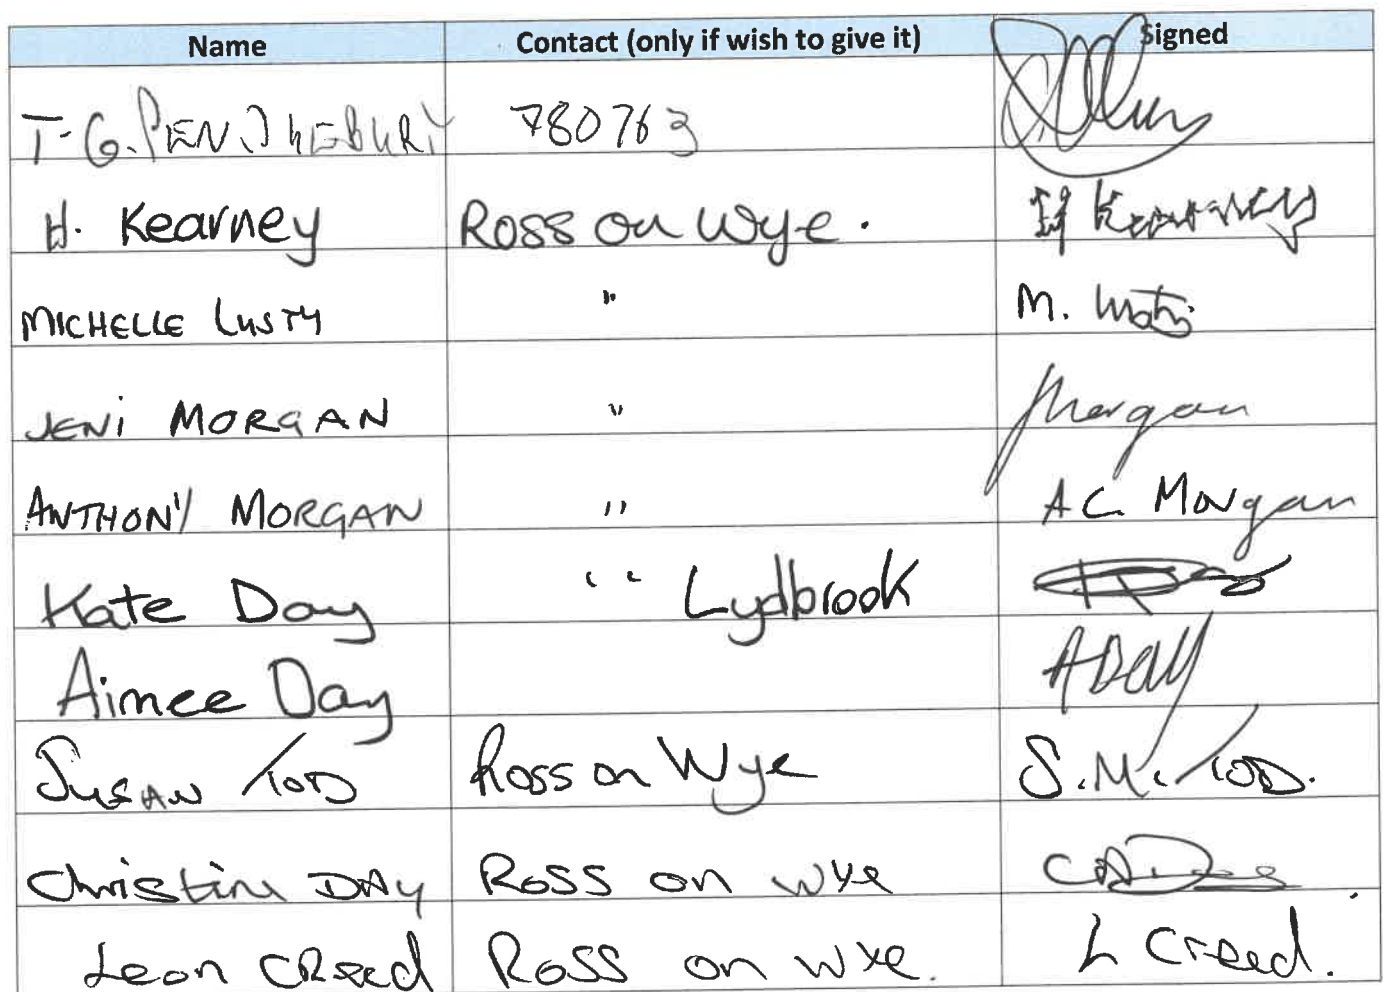 Name Contact (only if wish to give it) Signed
T-G. 780763
H. Kearney Ross on Wye. H Kearney
MICHELLE LUSTY " M. Lusty
JENi MORGAN " JMorgan
ANTHONY MORGAN " A C. Morgan
Kate Day " Lydbrook
Aimee Day A DAY
SUSAN TOD Ross on Wye S.M. TOD.
Christine DAy ROSS on wye
Leon CReed ROSS on wye. L Creed.